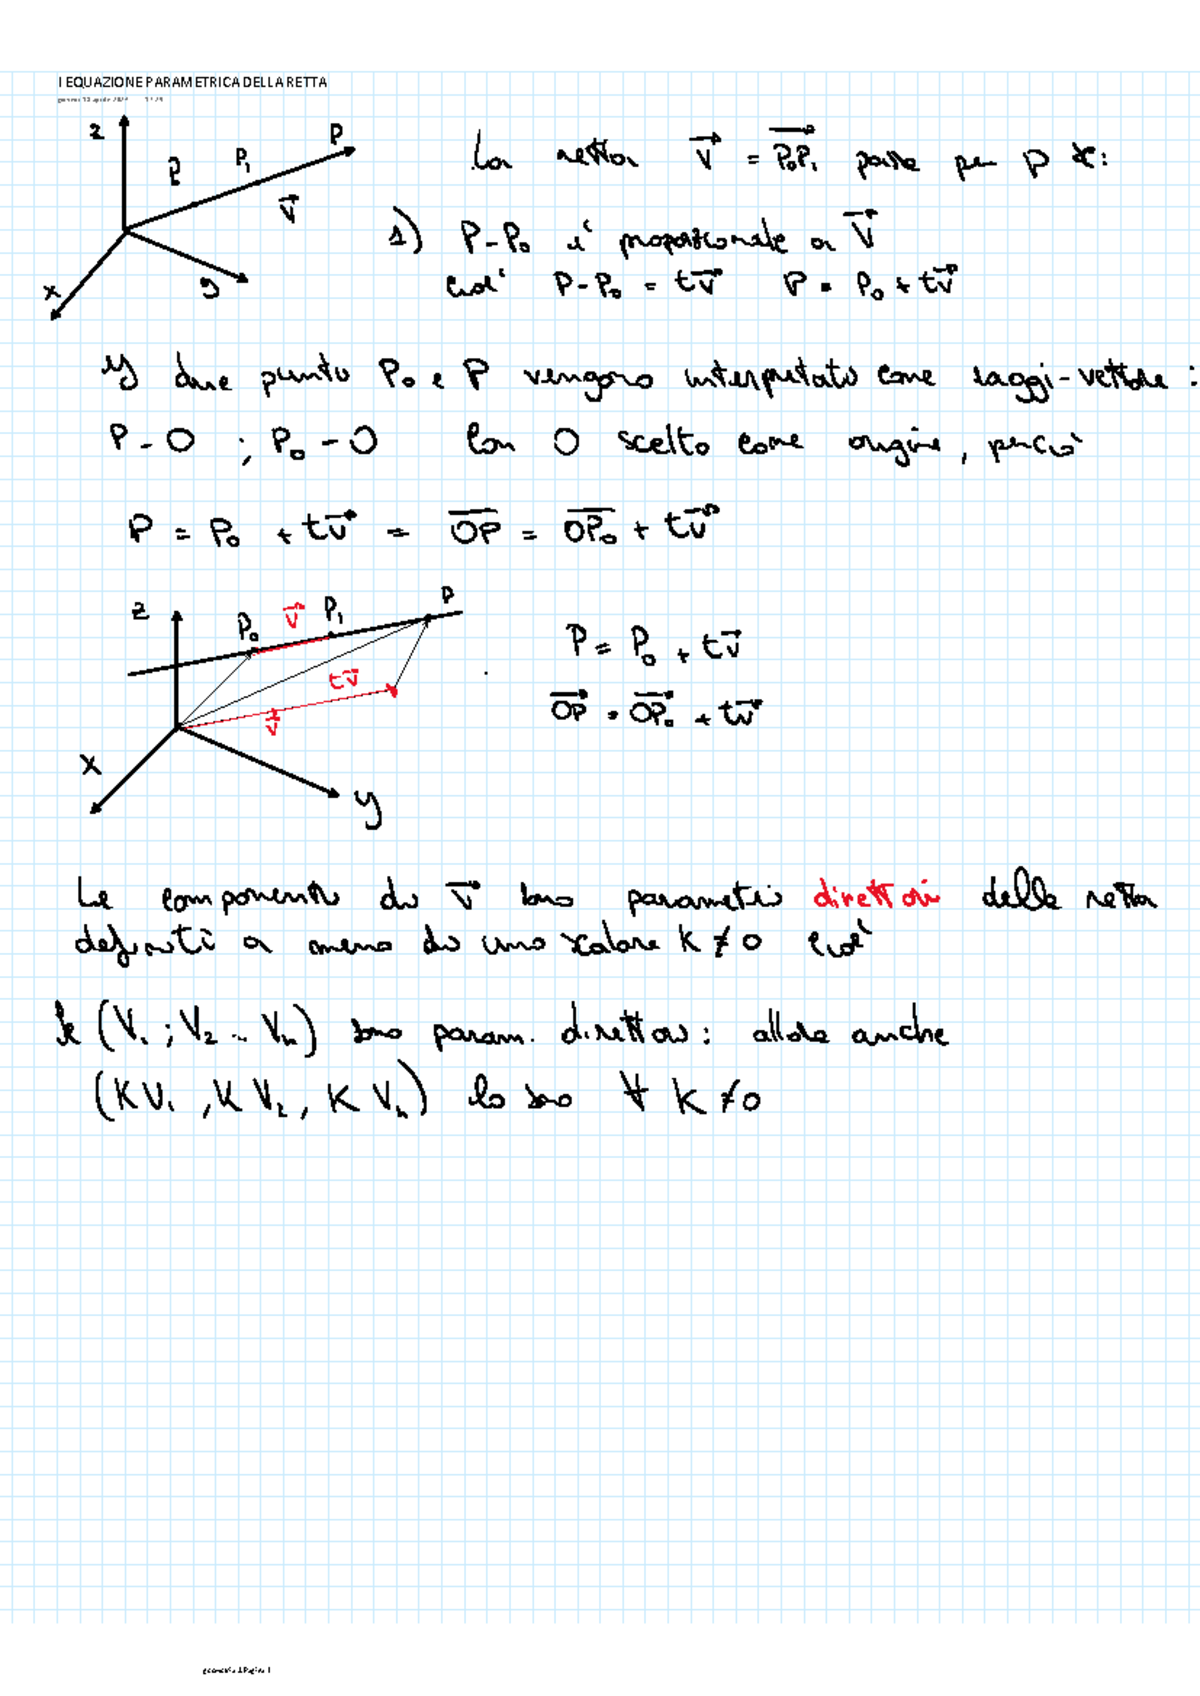 I EQUAZIONE PARAMETRICA DELLA RETTA
z P₀ P₁ P v⃗ x y
La retta v⃗ = P₀P₁ passa per P se:
1) P-P₀ è proporzionale a v⃗
cioè P-P₀ = tv⃗ P = P₀ + tv⃗
I due punti P₀ e P vengono interpretati come raggi-vettore :
P-O ; P₀-O con O scelto come origine, perciò
P = P₀ + tv⃗ = OP = OP₀ + tv⃗
z P₀ v⃗ P₁ P
tv⃗ v⃗
x y
P = P₀ + tv⃗
OP = OP₀ + tv⃗
Le componenti di v⃗ sono parametri direttori della retta
definiti a meno di uno scalare K ≠ 0 cioè
Se (V₁ ; V₂ .. Vₙ) sono param. direttori : allora anche
(KV₁ , K V₂ , K Vₙ) lo sono ∀ K ≠ 0
geometria 1 Pagina 1